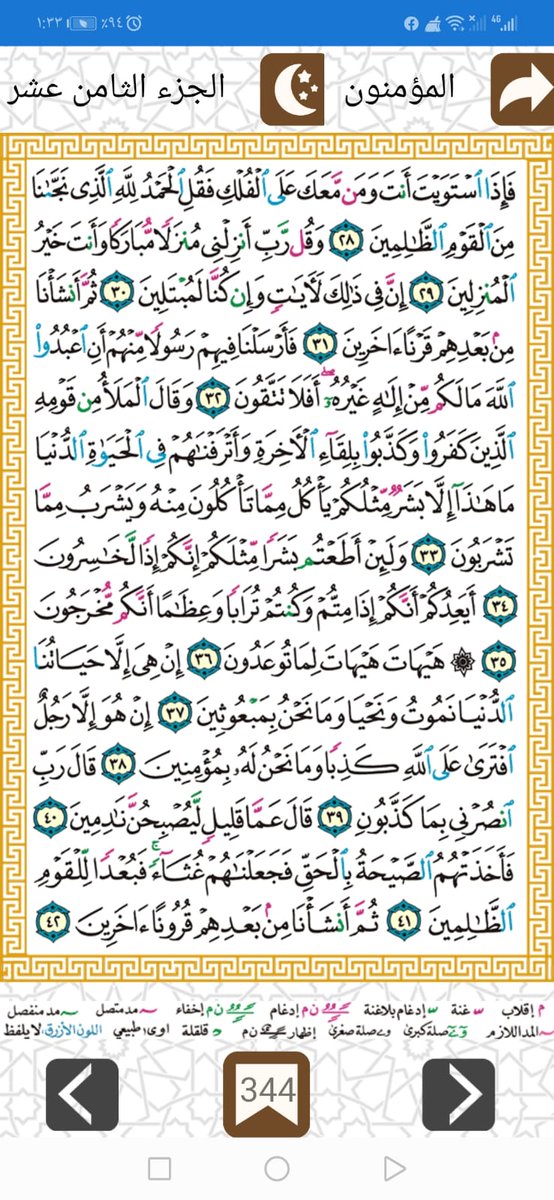 ١:٣٣ ٪٩٤ 4G
المؤمنون الجزء الثامن عشر
فَإِذَا ٱسْتَوَيْتَ أَنتَ وَمَن مَّعَكَ عَلَى ٱلْفُلْكِ فَقُلِ ٱلْحَمْدُ لِلَّهِ ٱلَّذِى نَجَّىٰنَا
مِنَ ٱلْقَوْمِ ٱلظَّٰلِمِينَ ٢٨ وَقُل رَّبِّ أَنزِلْنِى مُنزَلًا مُّبَارَكًا وَأَنتَ خَيْرُ
ٱلْمُنزِلِينَ ٢٩ إِنَّ فِى ذَٰلِكَ لَءَايَٰتٍ وَإِن كُنَّا لَمُبْتَلِينَ ٣٠ ثُمَّ أَنشَأْنَا
مِنۢ بَعْدِهِمْ قَرْنًا ءَاخَرِينَ ٣١ فَأَرْسَلْنَا فِيهِمْ رَسُولًا مِّنْهُمْ أَنِ ٱعْبُدُوا۟
ٱللَّهَ مَا لَكُم مِّنْ إِلَٰهٍ غَيْرُهُۥٓ أَفَلَا تَتَّقُونَ ٣٢ وَقَالَ ٱلْمَلَأُ مِن قَوْمِهِ
ٱلَّذِينَ كَفَرُوا۟ وَكَذَّبُوا۟ بِلِقَآءِ ٱلْءَاخِرَةِ وَأَتْرَفْنَٰهُمْ فِى ٱلْحَيَوٰةِ ٱلدُّنْيَا
مَا هَٰذَآ إِلَّا بَشَرٌ مِّثْلُكُمْ يَأْكُلُ مِمَّا تَأْكُلُونَ مِنْهُ وَيَشْرَبُ مِمَّا
تَشْرَبُونَ ٣٣ وَلَئِنْ أَطَعْتُم بَشَرًا مِّثْلَكُمْ إِنَّكُمْ إِذًا لَّخَٰسِرُونَ
٣٤ أَيَعِدُكُمْ أَنَّكُمْ إِذَا مِتُّمْ وَكُنتُمْ تُرَابًا وَعِظَٰمًا أَنَّكُم مُّخْرَجُونَ
٣٥ ۞ هَيْهَاتَ هَيْهَاتَ لِمَا تُوعَدُونَ ٣٦ إِنْ هِىَ إِلَّا حَيَاتُنَا
ٱلدُّنْيَا نَمُوتُ وَنَحْيَا وَمَا نَحْنُ بِمَبْعُوثِينَ ٣٧ إِنْ هُوَ إِلَّا رَجُلٌ
ٱفْتَرَىٰ عَلَى ٱللَّهِ كَذِبًا وَمَا نَحْنُ لَهُۥ بِمُؤْمِنِينَ ٣٨ قَالَ رَبِّ
ٱنصُرْنِى بِمَا كَذَّبُونِ ٣٩ قَالَ عَمَّا قَلِيلٍ لَّيُصْبِحُنَّ نَٰدِمِينَ ٤٠
فَأَخَذَتْهُمُ ٱلصَّيْحَةُ بِٱلْحَقِّ فَجَعَلْنَٰهُمْ غُثَآءً ۚ فَبُعْدًا لِّلْقَوْمِ
ٱلظَّٰلِمِينَ ٤١ ثُمَّ أَنشَأْنَا مِنۢ بَعْدِهِمْ قُرُونًا ءَاخَرِينَ ٤٢
م إقلاب غنة إدغام بلاغنة ن م إدغام ن م إخفاء مد متصل مد منفصل
المد اللازم صلة كبرى صلة صغرى إظهار ن م قلقلة اوى طبيعي اللون الأزرق لا يلفظ
344